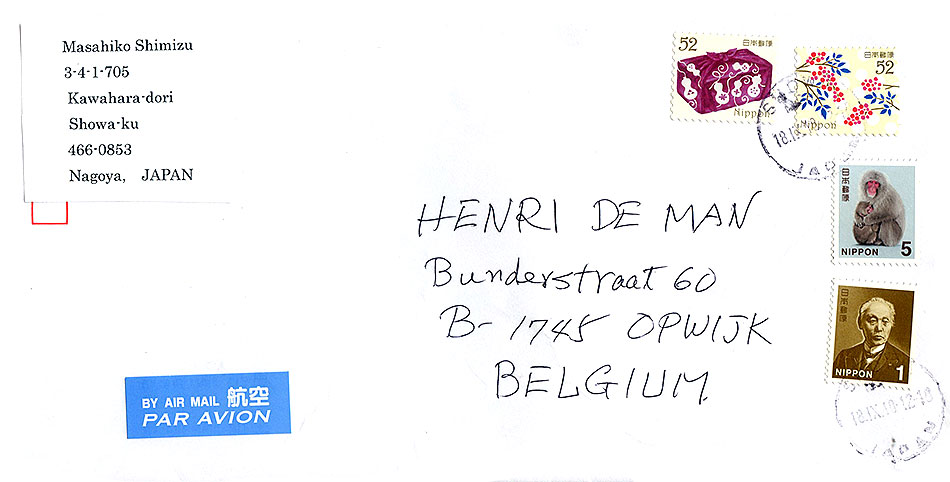 Masahiko Shimizu
3-4-1-705
Kawahara-dori
Showa-ku
466-0853
Nagoya, JAPAN
52
日本郵便
Nippon
日本郵便
52
Nippon
18.IX
JAPAN
日本郵便
NIPPON 5
日本郵便
NIPPON 1
HENRI DE MAN
Bunderstraat 60
B-1745 OPWIJK
BELGIUM
BY AIR MAIL 航空
PAR AVION
18.IX.19.12-18
JAPAN